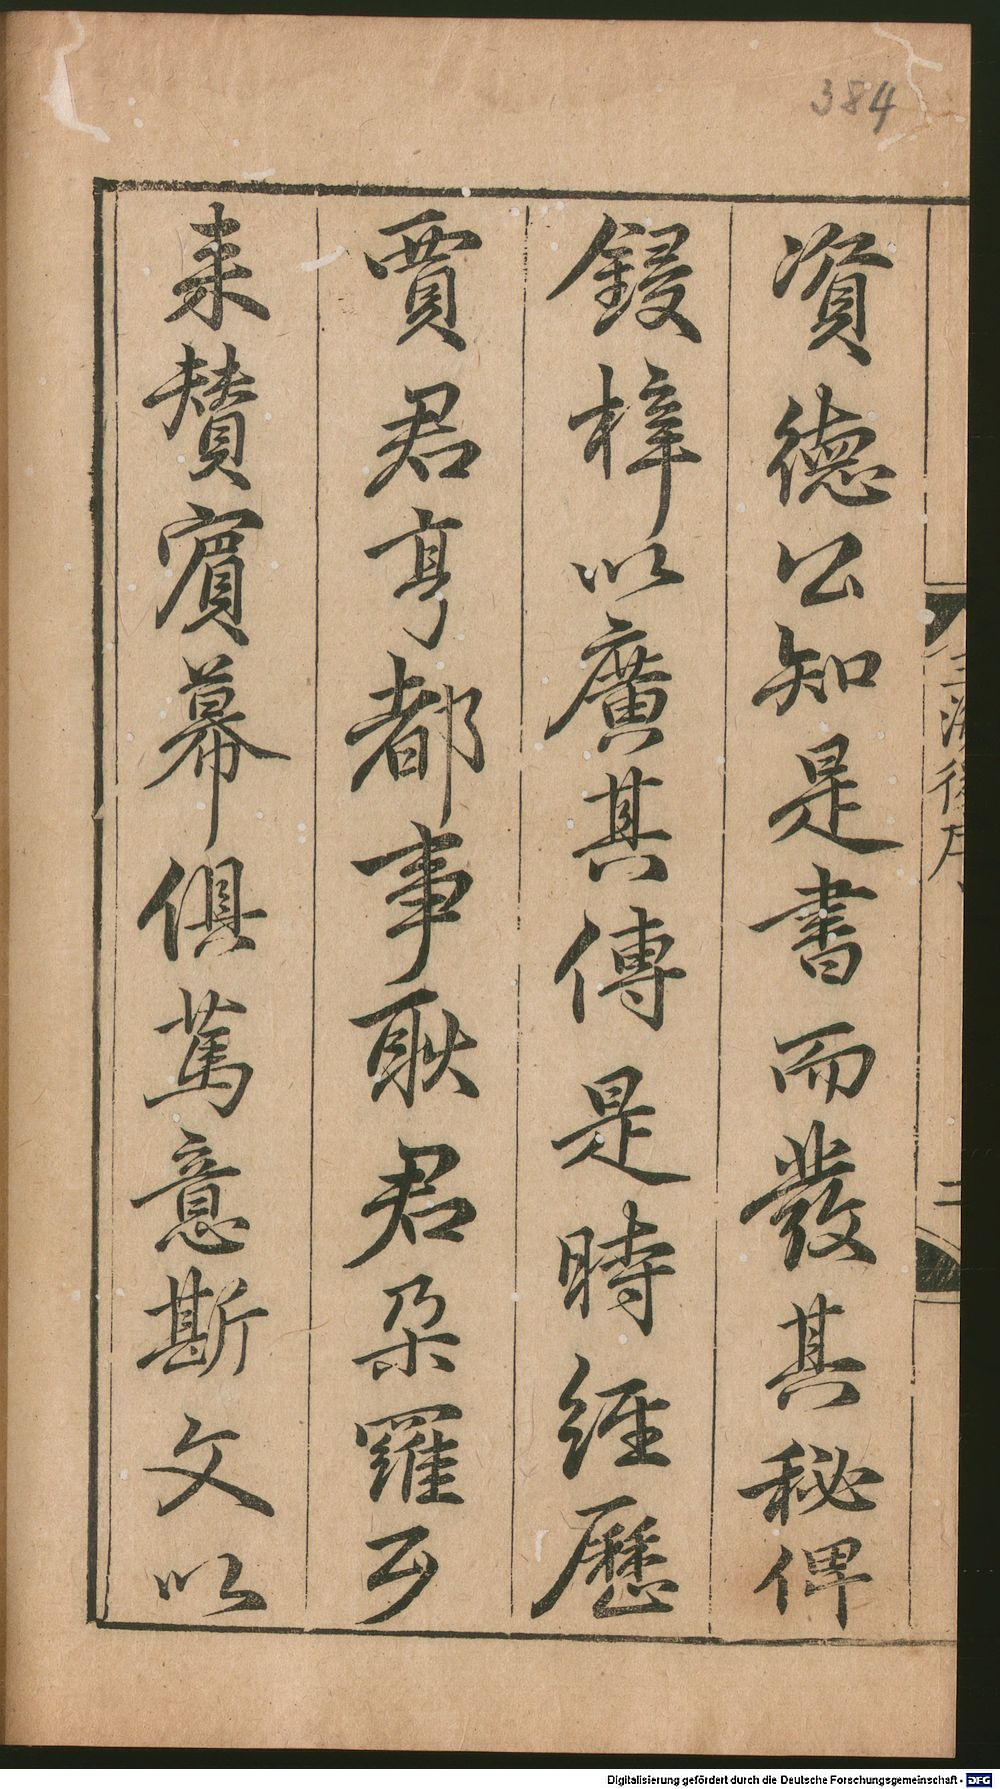 384
資德公知是書而發其秘俾
鋟梓以廣其傳是時經歷
賈君亨都事耿君朶羅歹
来賛賔幕俱篤意斯文以
後序
二
Digitalisierung gefördert durch die Deutsche Forschungsgemeinschaft - DFG